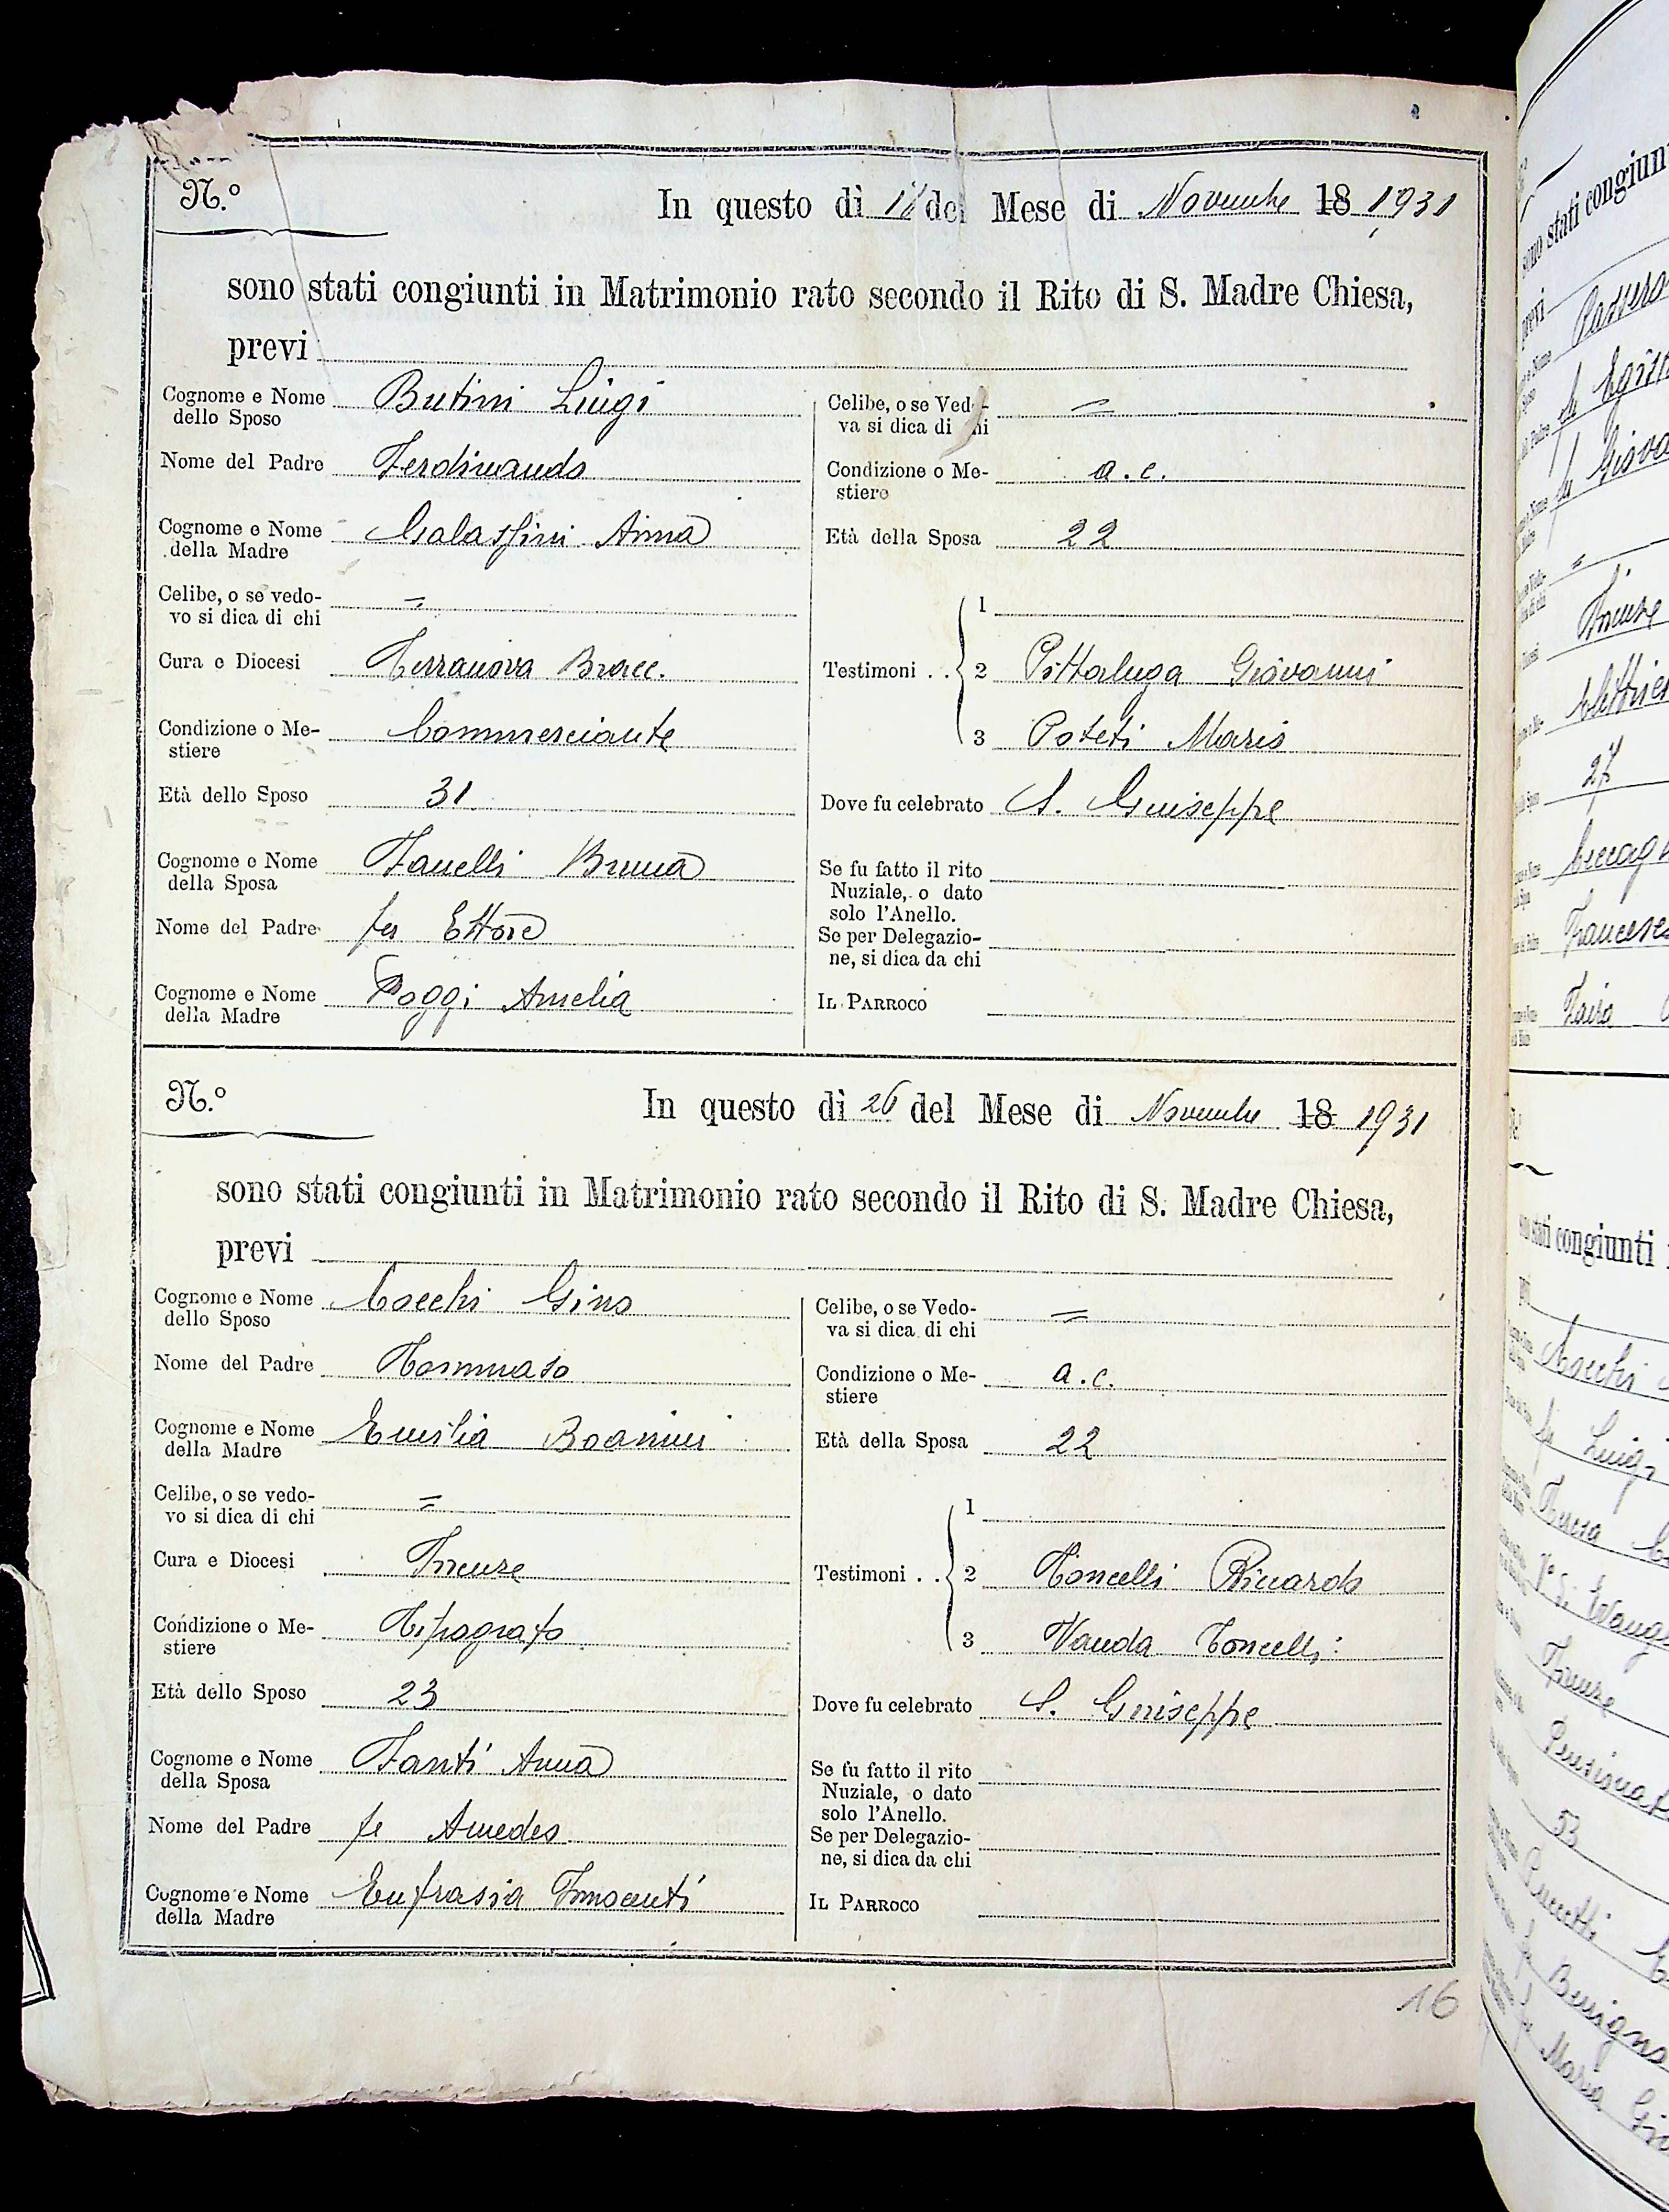 N.º
In questo dì del Mese di Novembre 18 1931
sono stati congiunti in Matrimonio rato secondo il Rito di S. Madre Chiesa,
previ
Cognome e Nome dello Sposo Butini Luigi
Nome del Padre Ferdinando
Cognome e Nome della Madre Galassini Anna
Celibe, o se vedovo si dica di chi =
Cura e Diocesi Terranova Bracc.
Condizione o Mestiere Commerciante
Età dello Sposo 31
Cognome e Nome della Sposa Fanelli Bruna
Nome del Padre fu Ettore
Cognome e Nome della Madre Poggi Amelia
Celibe, o se Vedova si dica di chi =
Condizione o Mestiere a.c.
Età della Sposa 22
Testimoni . . 1
2 Pittaluga Giovanni
3 Poteti Mario
Dove fu celebrato S. Giuseppe
Se fu fatto il rito Nuziale, o dato solo l'Anello.
Se per Delegazione, si dica da chi
IL PARROCO
N.º
In questo dì 26 del Mese di Novembre 18 1931
sono stati congiunti in Matrimonio rato secondo il Rito di S. Madre Chiesa,
previ
Cognome e Nome dello Sposo Cocchi Gino
Nome del Padre Tommaso
Cognome e Nome della Madre Emilia
Celibe, o se vedovo si dica di chi =
Cura e Diocesi Firenze
Condizione o Mestiere Tipografo
Età dello Sposo 23
Cognome e Nome della Sposa Fanti Anna
Nome del Padre fu Amedeo
Cognome e Nome della Madre Eufrasia Innocenti
Celibe, o se Vedova si dica di chi =
Condizione o Mestiere a.c.
Età della Sposa 22
Testimoni . . 1
2 Toncelli Riccardo
3 Vanda Toncelli
Dove fu celebrato S. Giuseppe
Se fu fatto il rito Nuziale, o dato solo l'Anello.
Se per Delegazione, si dica da chi
IL PARROCO
16